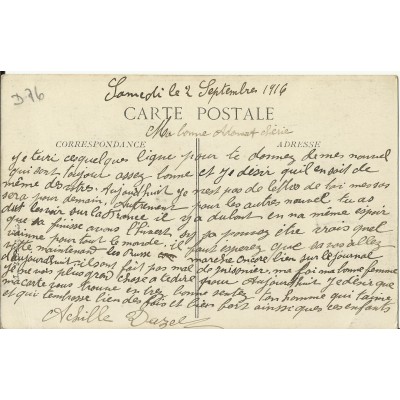 376
Samedi le 2 Septembres 1916
CARTE POSTALE
Ma bonne
CORRESPONDANCE ADRESSE
je tecri ces quelques ligne pour te donnez de mes nouvel
qui sont toujour assez bonne et je desir quil en soit de
même des votres. Aujourdhuit je nest pas de lettres de toi mes sa
sera pour demain. Autrement pour les autres nouvel tu as
dut levoir sur la France il y a du bont en na même espoir
que sa finisse avans l'hiver sa pouvez être vrais quel
pour tout le monde, il faut esperez que sa vas allez
vite maintenant les Russe marche encore bien sur le journal
d'aujourdhuit il sont fait pas mal de prisonnier, ma foi ma bonne femme
je ne vois plus grand chose a te dire pour Aujourdhuit je desire que
ma carte vous trouve en très bonne santez ton homme qui taime
et qui tembrasse bien des fois et bien fort ainsi que ces enfants
Achille